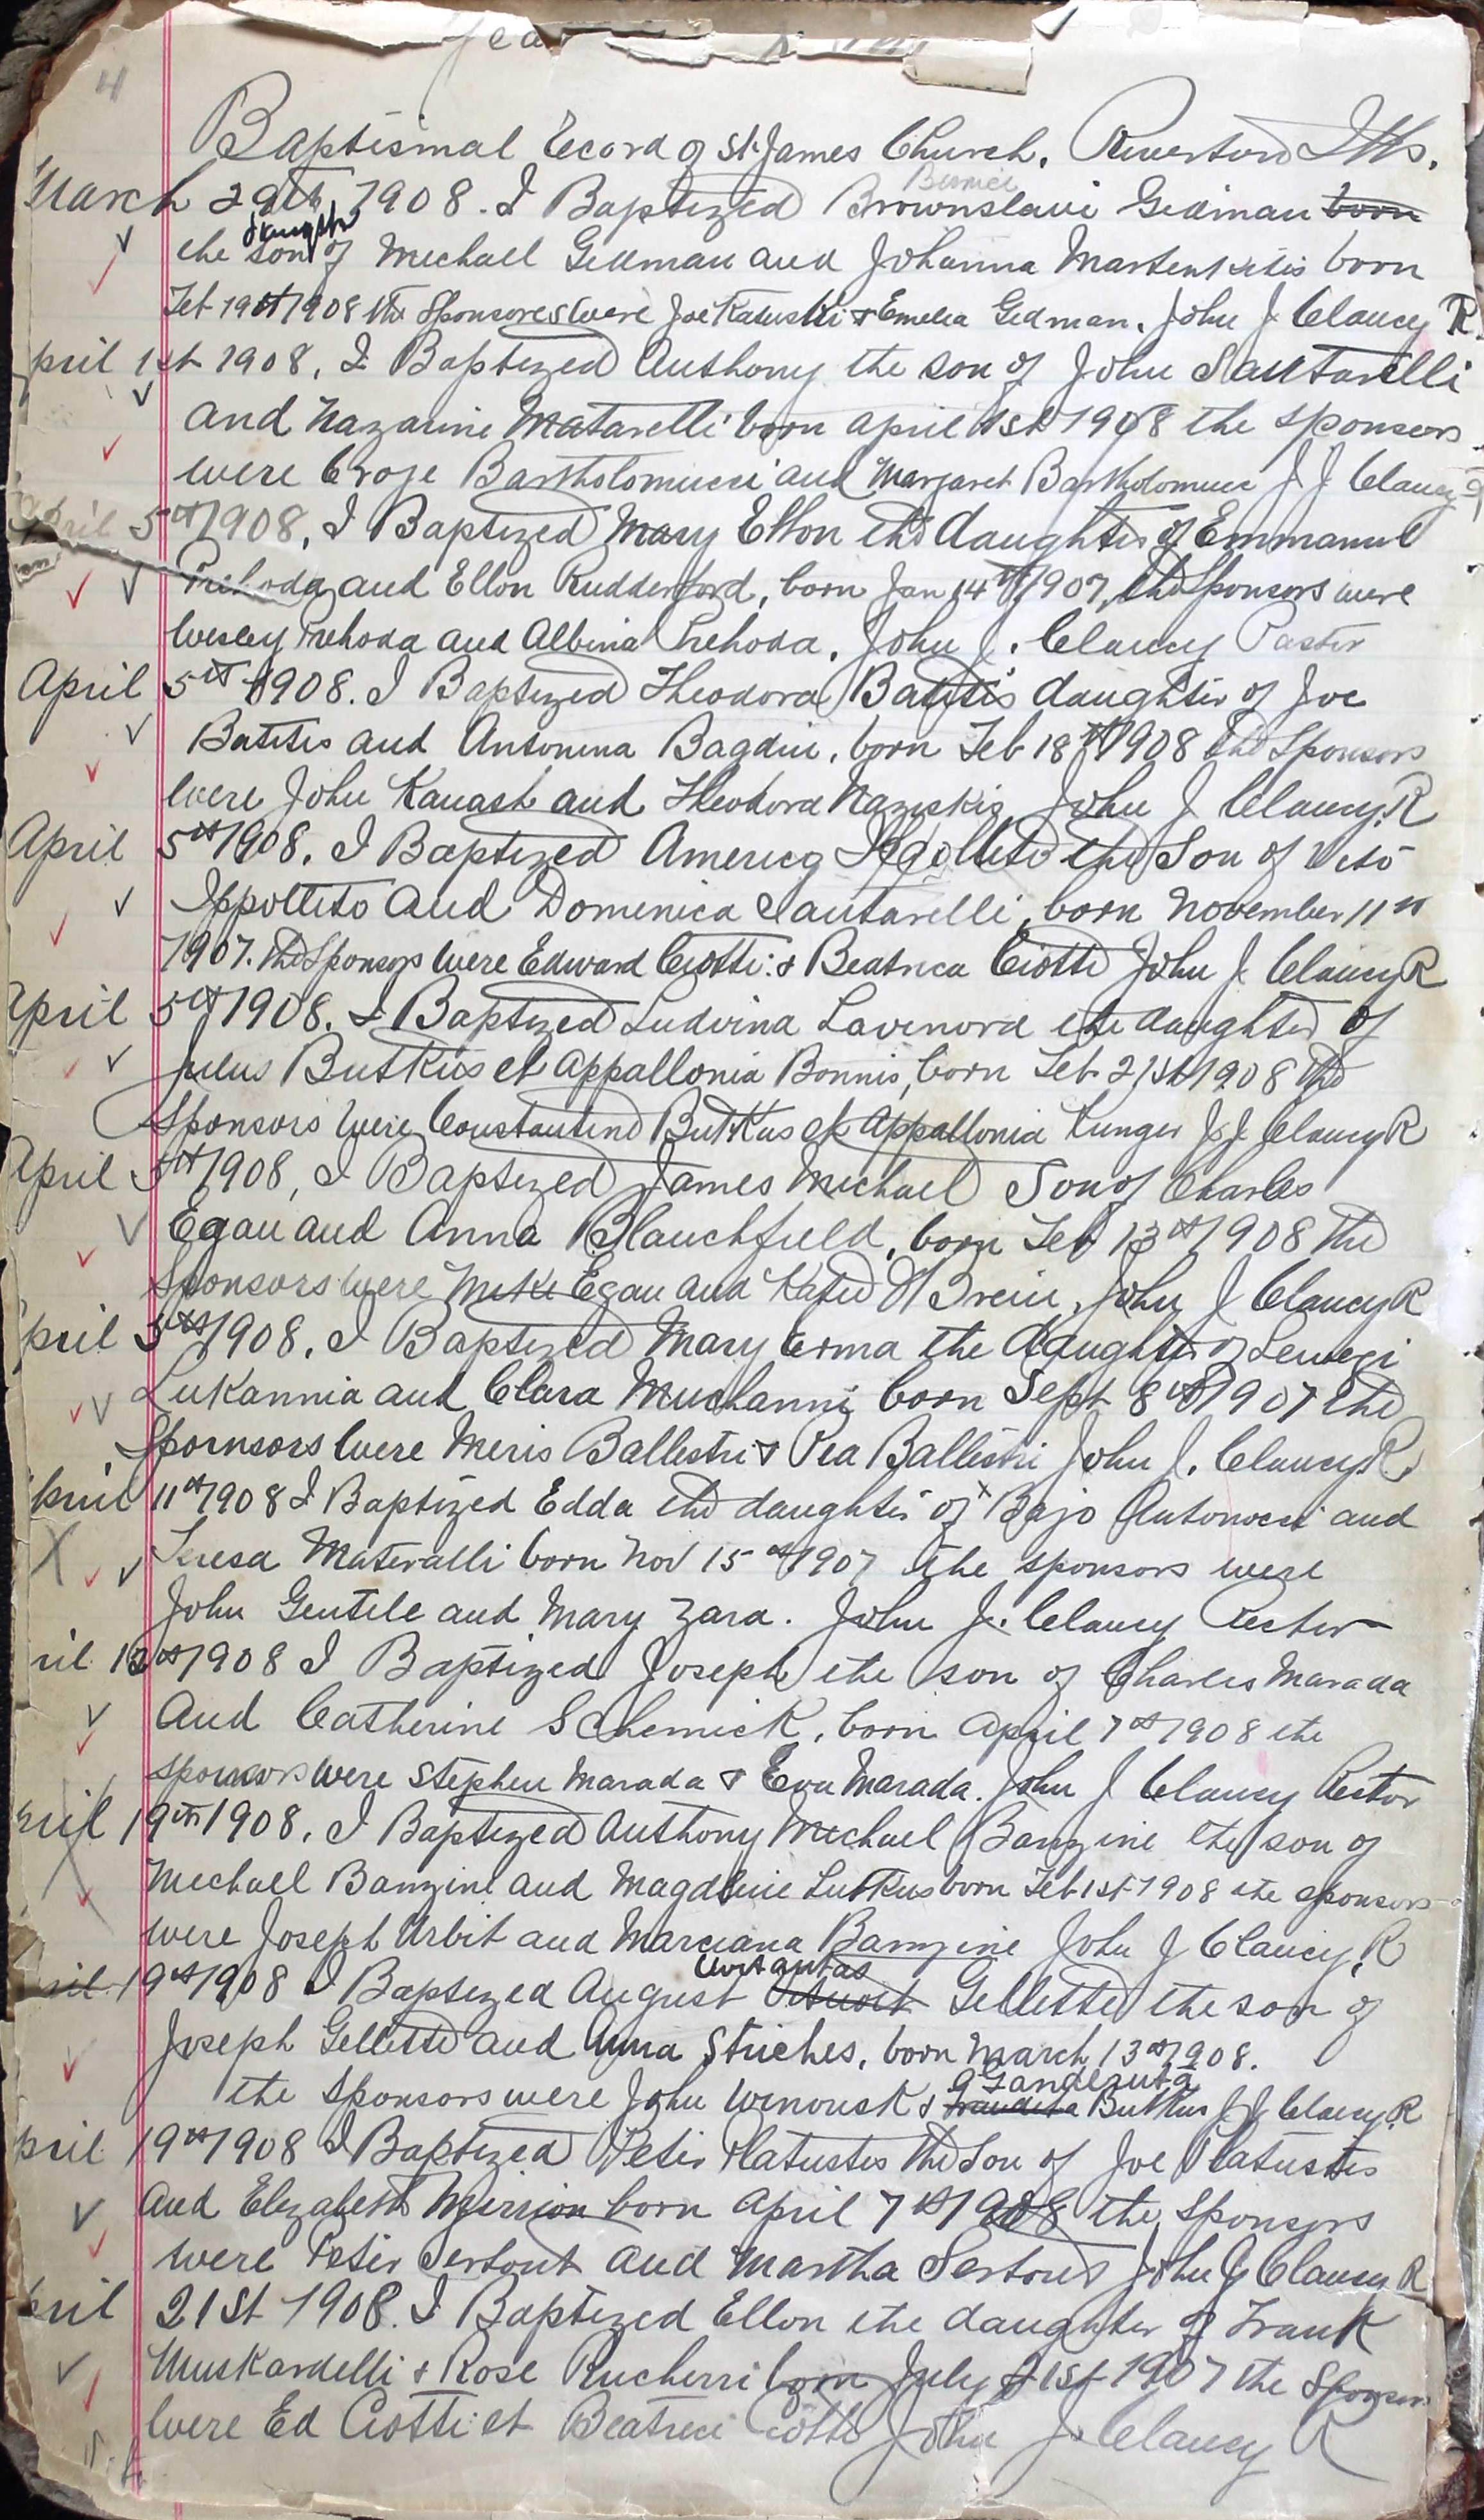 4
Baptismal Record of St. James Church. Riverton Ills.
Bernice
March 29th, 1908. I Baptized Brownslavi Gedman born
daughter
the son of Michael Gedman and Johanna born
Feb 19th 1908 the Sponsores were Joe Katuski & Emelia Gedman. John J. Clancy R.
pril 1st 1908, I Baptized Anthony the son of John Santarelli
and Nazarine Matarelli born april 1st 1908 the sponsors
were Bartholomucci and Margaret Bartholomucci J J Clancy
April 5th 1908, I Baptized Mary Ellon the daughter of Emmanul
Prehoda and Ellon Rudderford, born Jan 14th 1907, the Sponsors were
Wesley Prehoda and Albina Prehoda. John J. Clancy Pastor
April 5th 1908. I Baptized Theodora Batitis daughter of Joe
Batitis and Antonina Bagdin, born Feb 18th 1908 the Sponsors
were John Kanash and Theodora John J Clancy. R
April 5th 1908. I Baptized Americo Ippolleto the Son of Veto
Ippolleto and Domenica Santarelli, born November 11th
1907. the Sponsors were Edward Ciotti & Beatrica Ciotti John J. Clancy R
April 5th 1908. I Baptized Ludvina Lavenora the daughter of
Julus Butkus et Appallonia Bonnis, born Feb 21st 1908 the
Sponsors were Constantine Butkus et Appallonia Kunges J. J. Clancy R
April 5th 1908, I Baptized James Michael Son of Charles
Egan and Anna Blanchfield, born Feb 13th 1908 the
Sponsors were Mike Egan and Katie O'Brein, John J Clancy R
pril 5th 1908. I Baptized Mary Erma the daughter of
Lukannia and Clara Muchanni born Sept 8th 1907 the
Spornsors were Meris Ballestri & Pea Ballestri John J. Clancy. R.
pril 11th 1908 I Baptized Edda the daughter of x Bajo Antonocci and
Teresa Materalli born Nov 15th 1907 the sponsors were
John Gentile and Mary Zara. John J. Clancy Rector
ril 12th 1908 I Baptized Joseph the son of Charles Marada
And Catherine Schemick, born april 7th 1908 the
sponsors were Stephen Marada & Eva Marada. John J Clancy Rector
pril 19th 1908. I Baptized Anthony Michael Banzine the son of
Michael Banzine and Magdleine Lutkus born Feb 1st 1908 the sponsors
were Joseph Urbit and Marciana Banzine John J Clancy. R
Uvitantas
ril 19th 1908 I Baptized August Gellette the son of
Joseph Gellette and Anna Striches, born March 13th 1908.
the Sponsors were John Wenousk & Butkus J. J. Clancy. R
pril 19th 1908 I Baptized Peter Platustis the Son of Joe Platustis
and Elizabeth Merrion born april 7th 1908 the Sponsors
were Peter Sertout and Martha Sertout John J Clancy R
pril 21st 1908. I Baptized Ellon the daughter of Frank
Muskardelli & Rose Rucherri born July 21st 1907 the Sponsors
were Ed Ciotti et Beatrici Ciotti John J. Clancy R